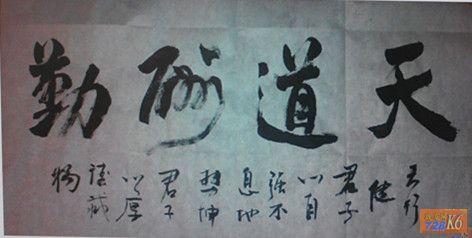 天道酬勤
天行
健
君子
以自
强不
息地
势坤
君子
以厚
德载
物
728
K6